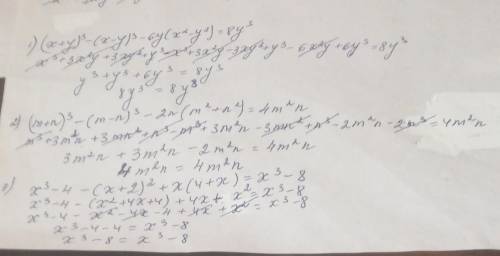 1) (x+y)³-(x-y)³-6y(x²-y²)=8y³
x³+3x²y+3xy²+y³-x³+3x²y-3xy²+y³-6x²y+6y³=8y³
y³+y³+6y³=8y³
8y³=8y³
2) (m+n)³-(m-n)³-2n(m²+n²)=4m²n
m³+3m²n+3mn²+n³-m³+3m²n-3mn²+n³-2m²n-2n³=4m²n
3m²n+3m²n-2m²n=4m²n
4m²n=4m²n
x³-4-(x+2)²+x(4+x)=x³-8
x³-4-(x²+4x+4)+4x+x²=x³-8
x³-4-x²-4x-4+4x+x²=x³-8
x³-4-4=x³-8
x³-8=x³-8